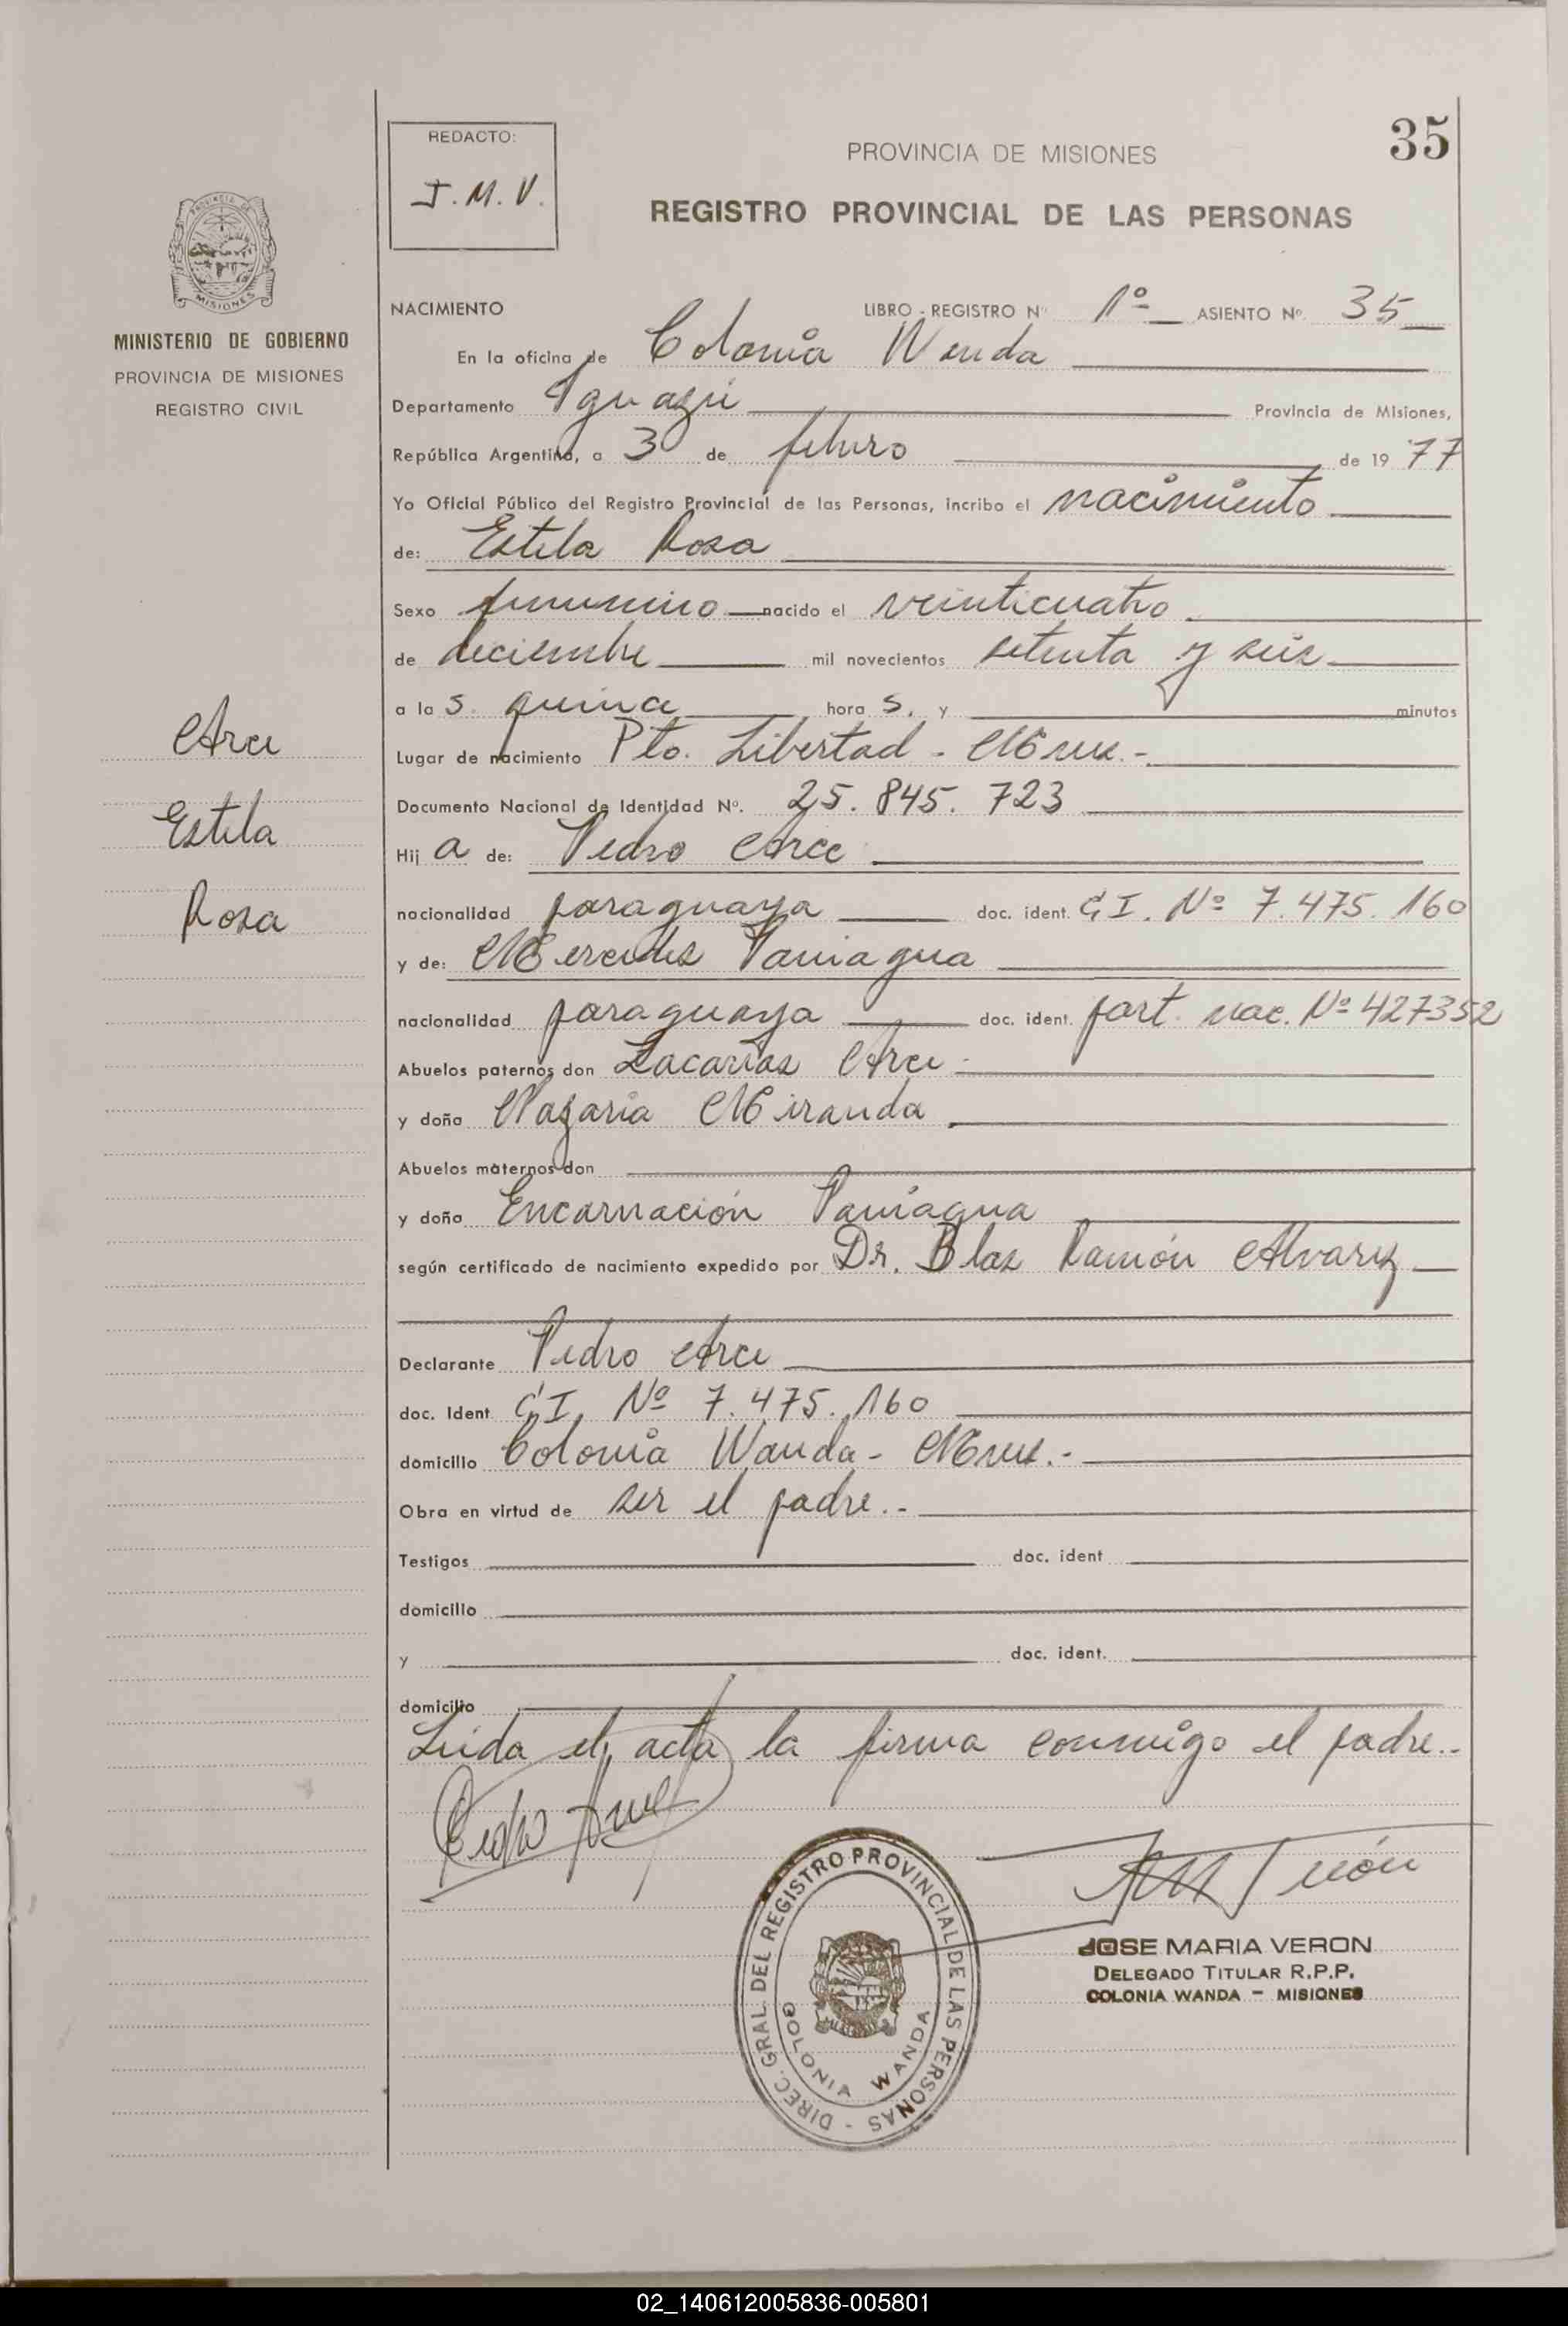 REDACTO:
J. M. V.
PROVINCIA DE MISIONES
35
REGISTRO PROVINCIAL DE LAS PERSONAS
MISIONES
MINISTERIO DE GOBIERNO
PROVINCIA DE MISIONES
REGISTRO CIVIL
NACIMIENTO LIBRO - REGISTRO Nº 1º ASIENTO Nº 35
En la oficina de Colonia Wanda
Departamento Iguazú Provincia de Misiones,
República Argentina, a 3 de febrero de 1977
Yo Oficial Público del Registro Provincial de las Personas, incribo el nacimiento
de: Estela Rosa
Sexo femenino nacido el veinticuatro
de diciembre mil novecientos setenta y seis
a las quince horas. y minutos
Lugar de nacimiento Pto. Libertad - Mnes.-
Documento Nacional de Identidad Nº. 25.845.723
Hija de: Pedro Arce
nacionalidad paraguaya doc. ident. C.I. Nº 7.475.160
y de: Mercedes Paniagua
nacionalidad paraguaya doc. ident. part. nac. Nº 427352
Abuelos paternos don Zacarías Arce -
y doña Nazaria Miranda
Abuelos maternos don
y doña Encarnación Paniagua
según certificado de nacimiento expedido por Dr. Blas Ramón Alvarez
Declarante Pedro Arce
doc. Ident C.I. Nº 7.475.160
domicilio Colonia Wanda - Mnes.-
Obra en virtud de ser el padre.-
Testigos doc. ident
domicilio
y doc. ident.
domicilio
Leída el acta la firma conmigo el padre..-
Arce
Estela
Rosa
Pedro Arce
DIREC. GRAL. DEL REGISTRO PROVINCIAL DE LAS PERSONAS -
COLONIA WANDA
JOSE MARIA VERON
DELEGADO TITULAR R.P.P.
COLONIA WANDA - MISIONES
02_140612005836-005801